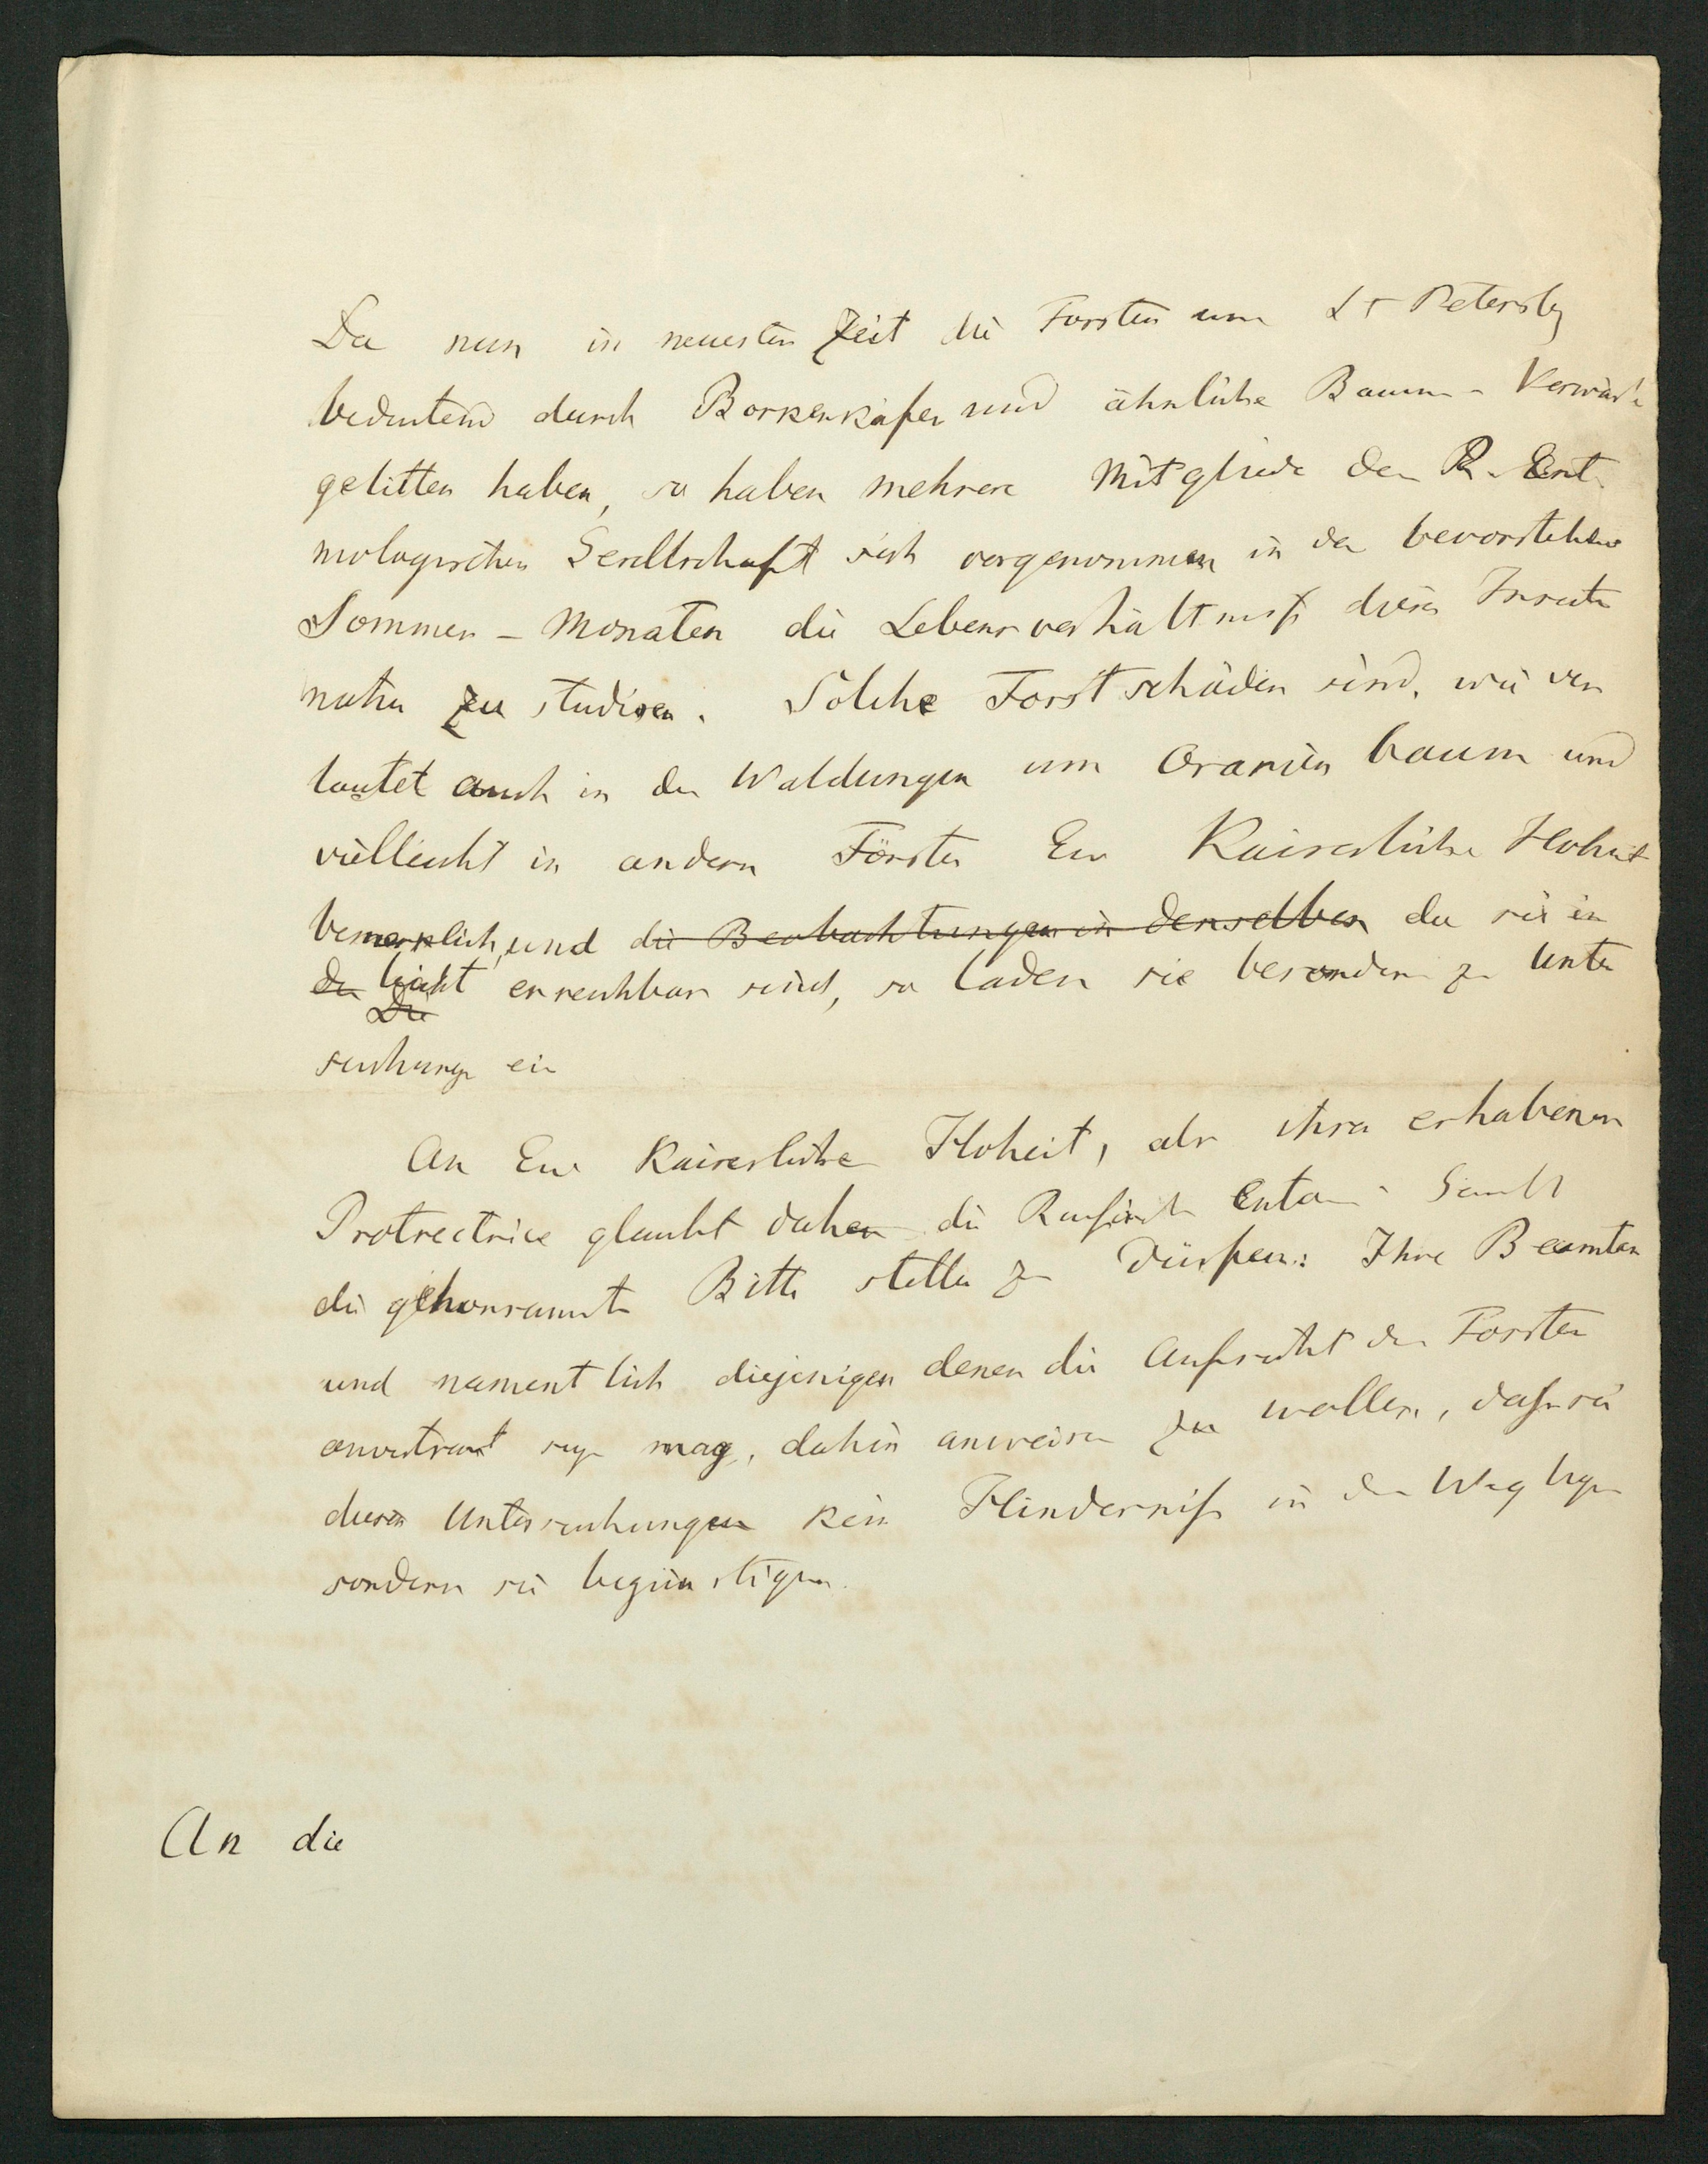 Da nun in neuester Zeit die Forsten um St Petersbg
bedeutend durch Borkenkäfer und ähnliche Baum-Verwüst
gelitten haben, so haben mehrere Mitglieder der R. Ent
mologischen Gesellschaft sich vorgenommen in den bevorstehend
Sommer-Monaten die Lebensverhältniss dieser Insecten
näher zu studiren. Solche Forstschäden sind, wie ver
lautet auch in den Waldungen um Oranienbaum und
vielleicht in andern Förster Ew Kaiserliche Hoheit
bemerklich, und die Beobachtungen in denselben da sie in
der leicht erreichbar sind, so laden sie besonders zu Unter
Die
suchungen ein
An Ew Kaiserliche Hoheit, als ihre erhabenen
Protectrice glaubt daher die Russische Entom Gesells
die gehorsamste Bitte stellen zu dürfen: Ihre Beamten
und namentlich diejenigen denen die Aufsicht der Forsten
anvertraut seyn mag, dahin anweisen zu wollen, dass sie
diesen Untersuchungen kein Hinderniss in den Weg legen
sondern sie begünstigen.
An die